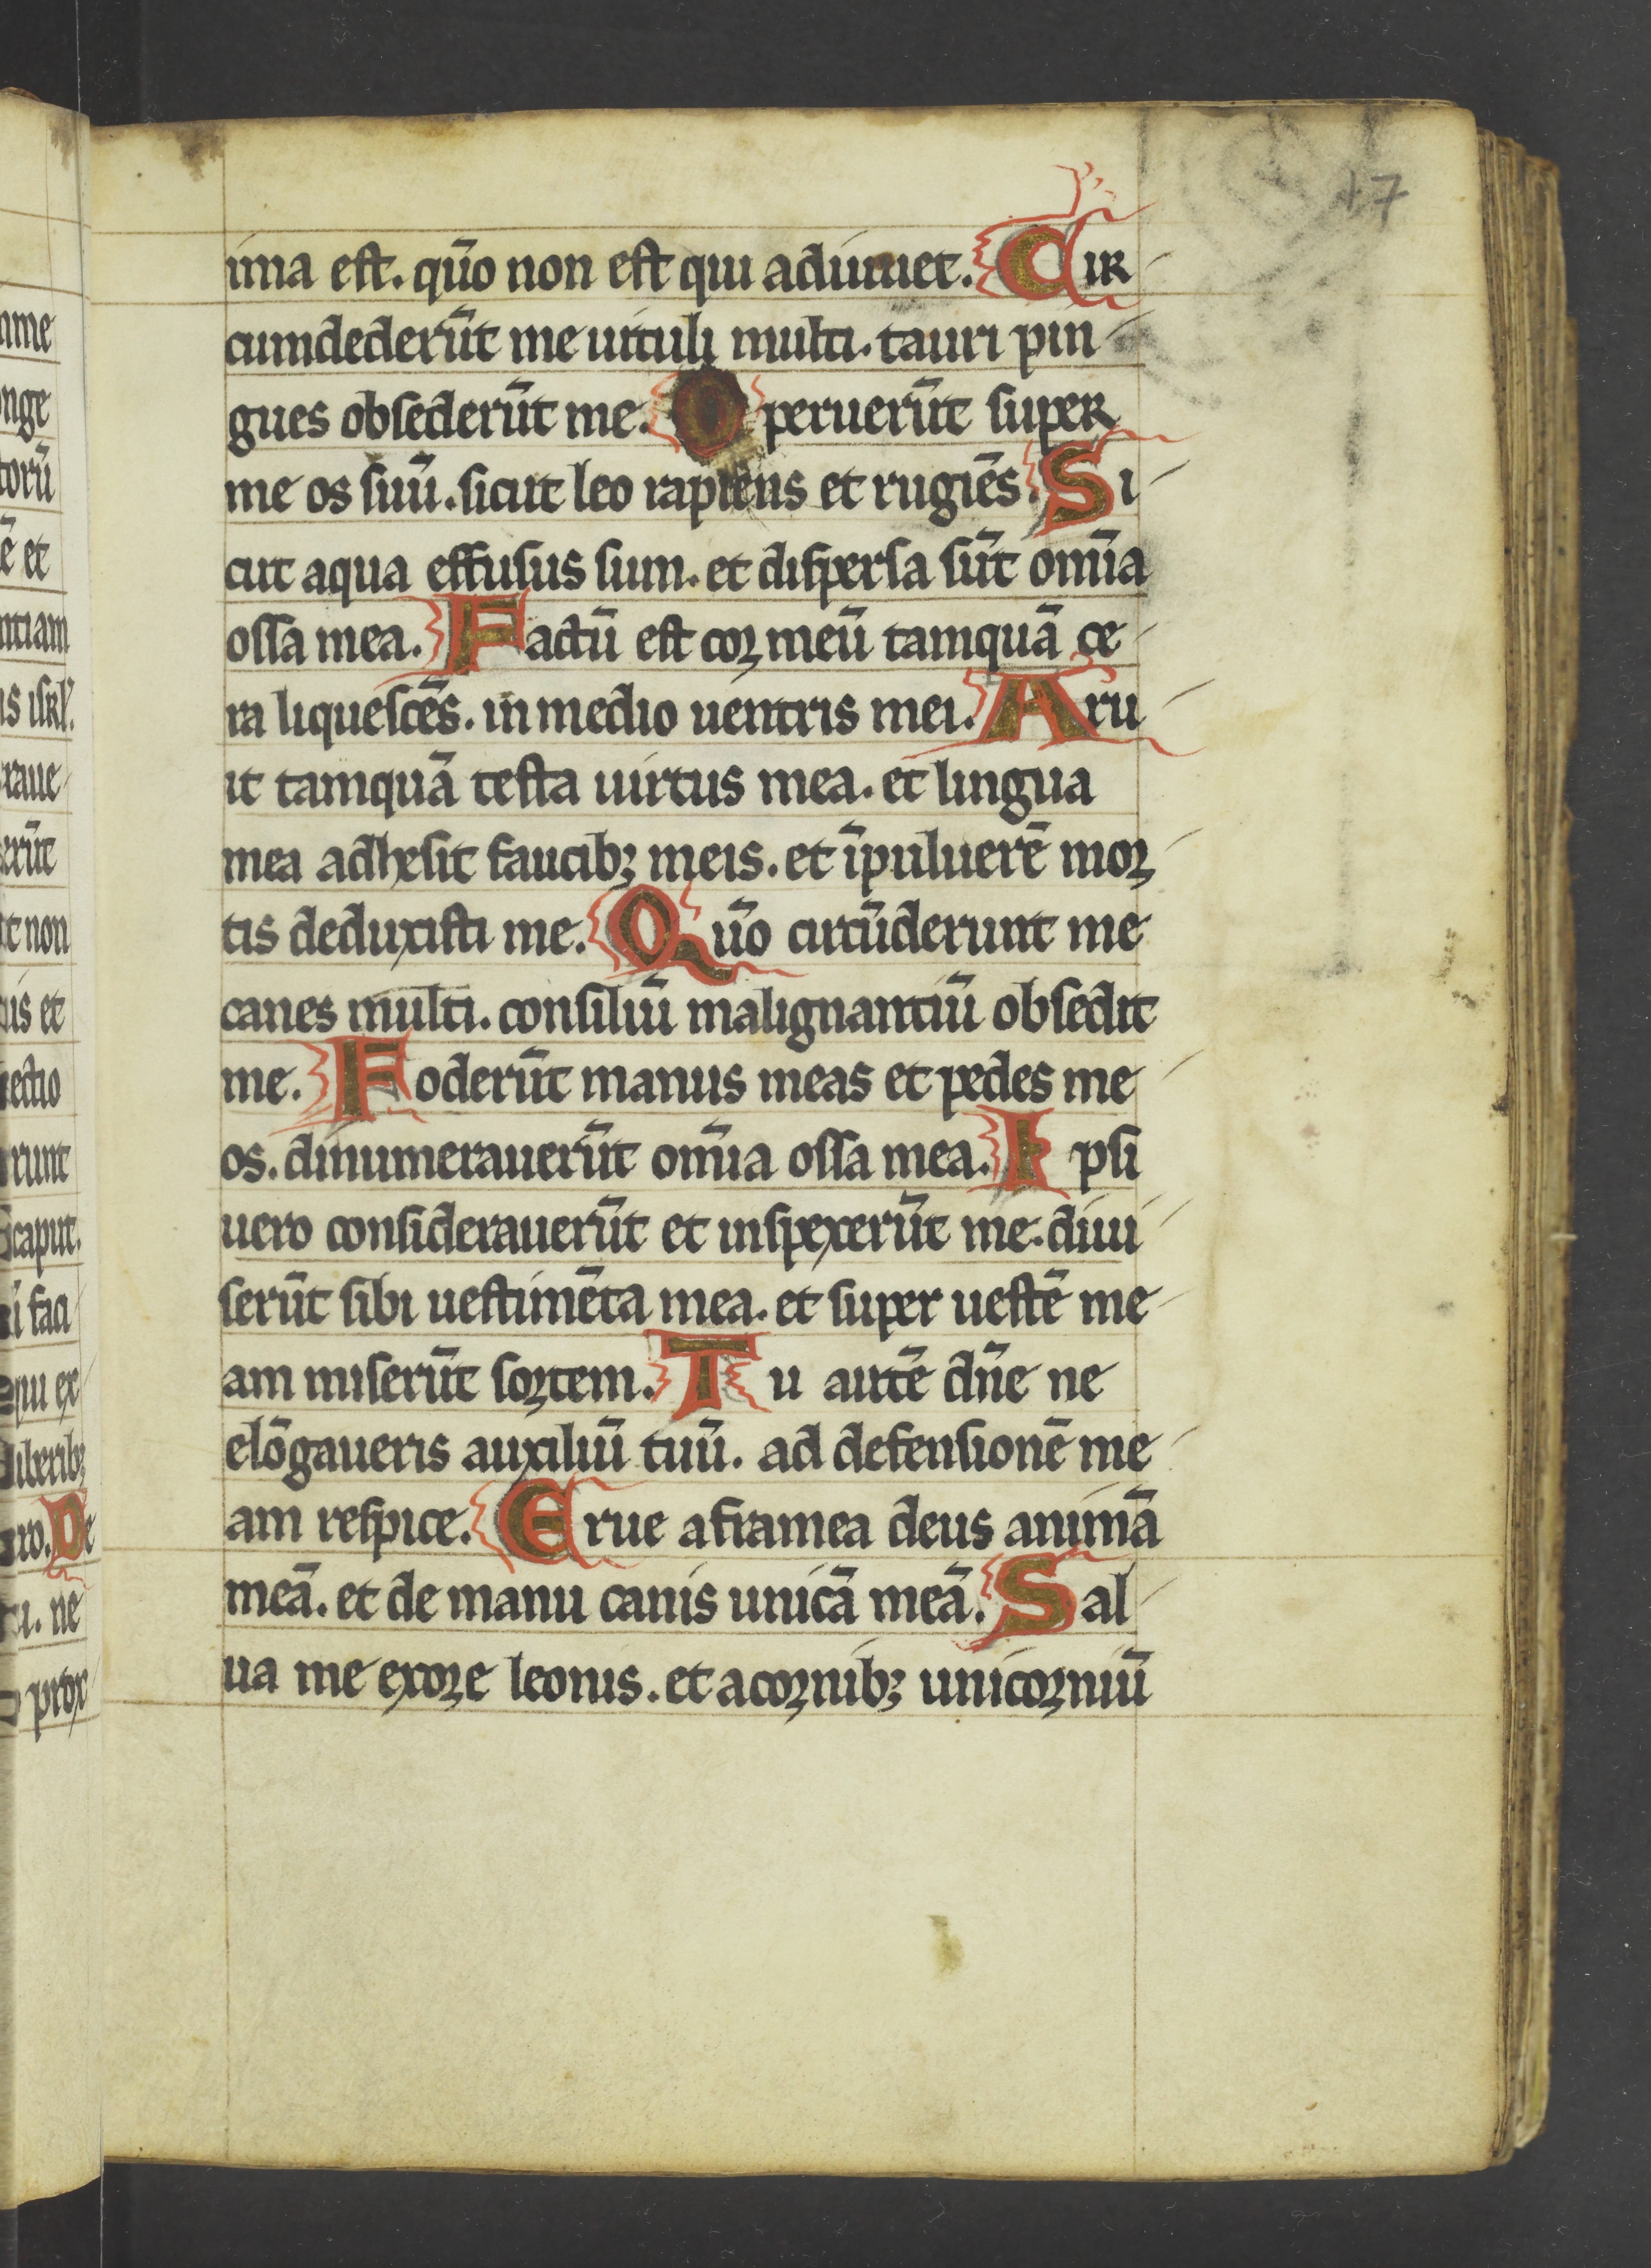 17
ima est. qūo non est qui adiuuet. Cir
cumdederūt me uituli multi. tauri pin
gues obsederūt me. Operuerūt super
me os suū. sicut leo rapiens et rugiēs. Si
cut aqua effusus sum. et dispersa sūt om̄ia
ossa mea. Factū est cor meū tamquā ce
ra liquescēs. in medio uentris mei. Aru
it tamquā testa uirtus mea. et lingua
mea adhesit faucib; meis. et īpuluerē mor
tis deduxisti me. Qūo circūderunt me
canes multi. consiliū malignantiū obsedit
me. Foderūt manus meas et pedes me
os. dinumerauerūt om̄ia ossa mea. Ipsi
uero considerauerūt et inspexerūt me. diui
serūt sibi uestimēta mea. et super uestē me
am miserūt sortem. Tu autē dn̄e ne
elōgaueris auxiliū tuū. ad defensionē me
am respice. Erue aframea deus animā
meā. et de manu canis unicā meā. Sal
ua me exore leonis. et acornib; unicorniū